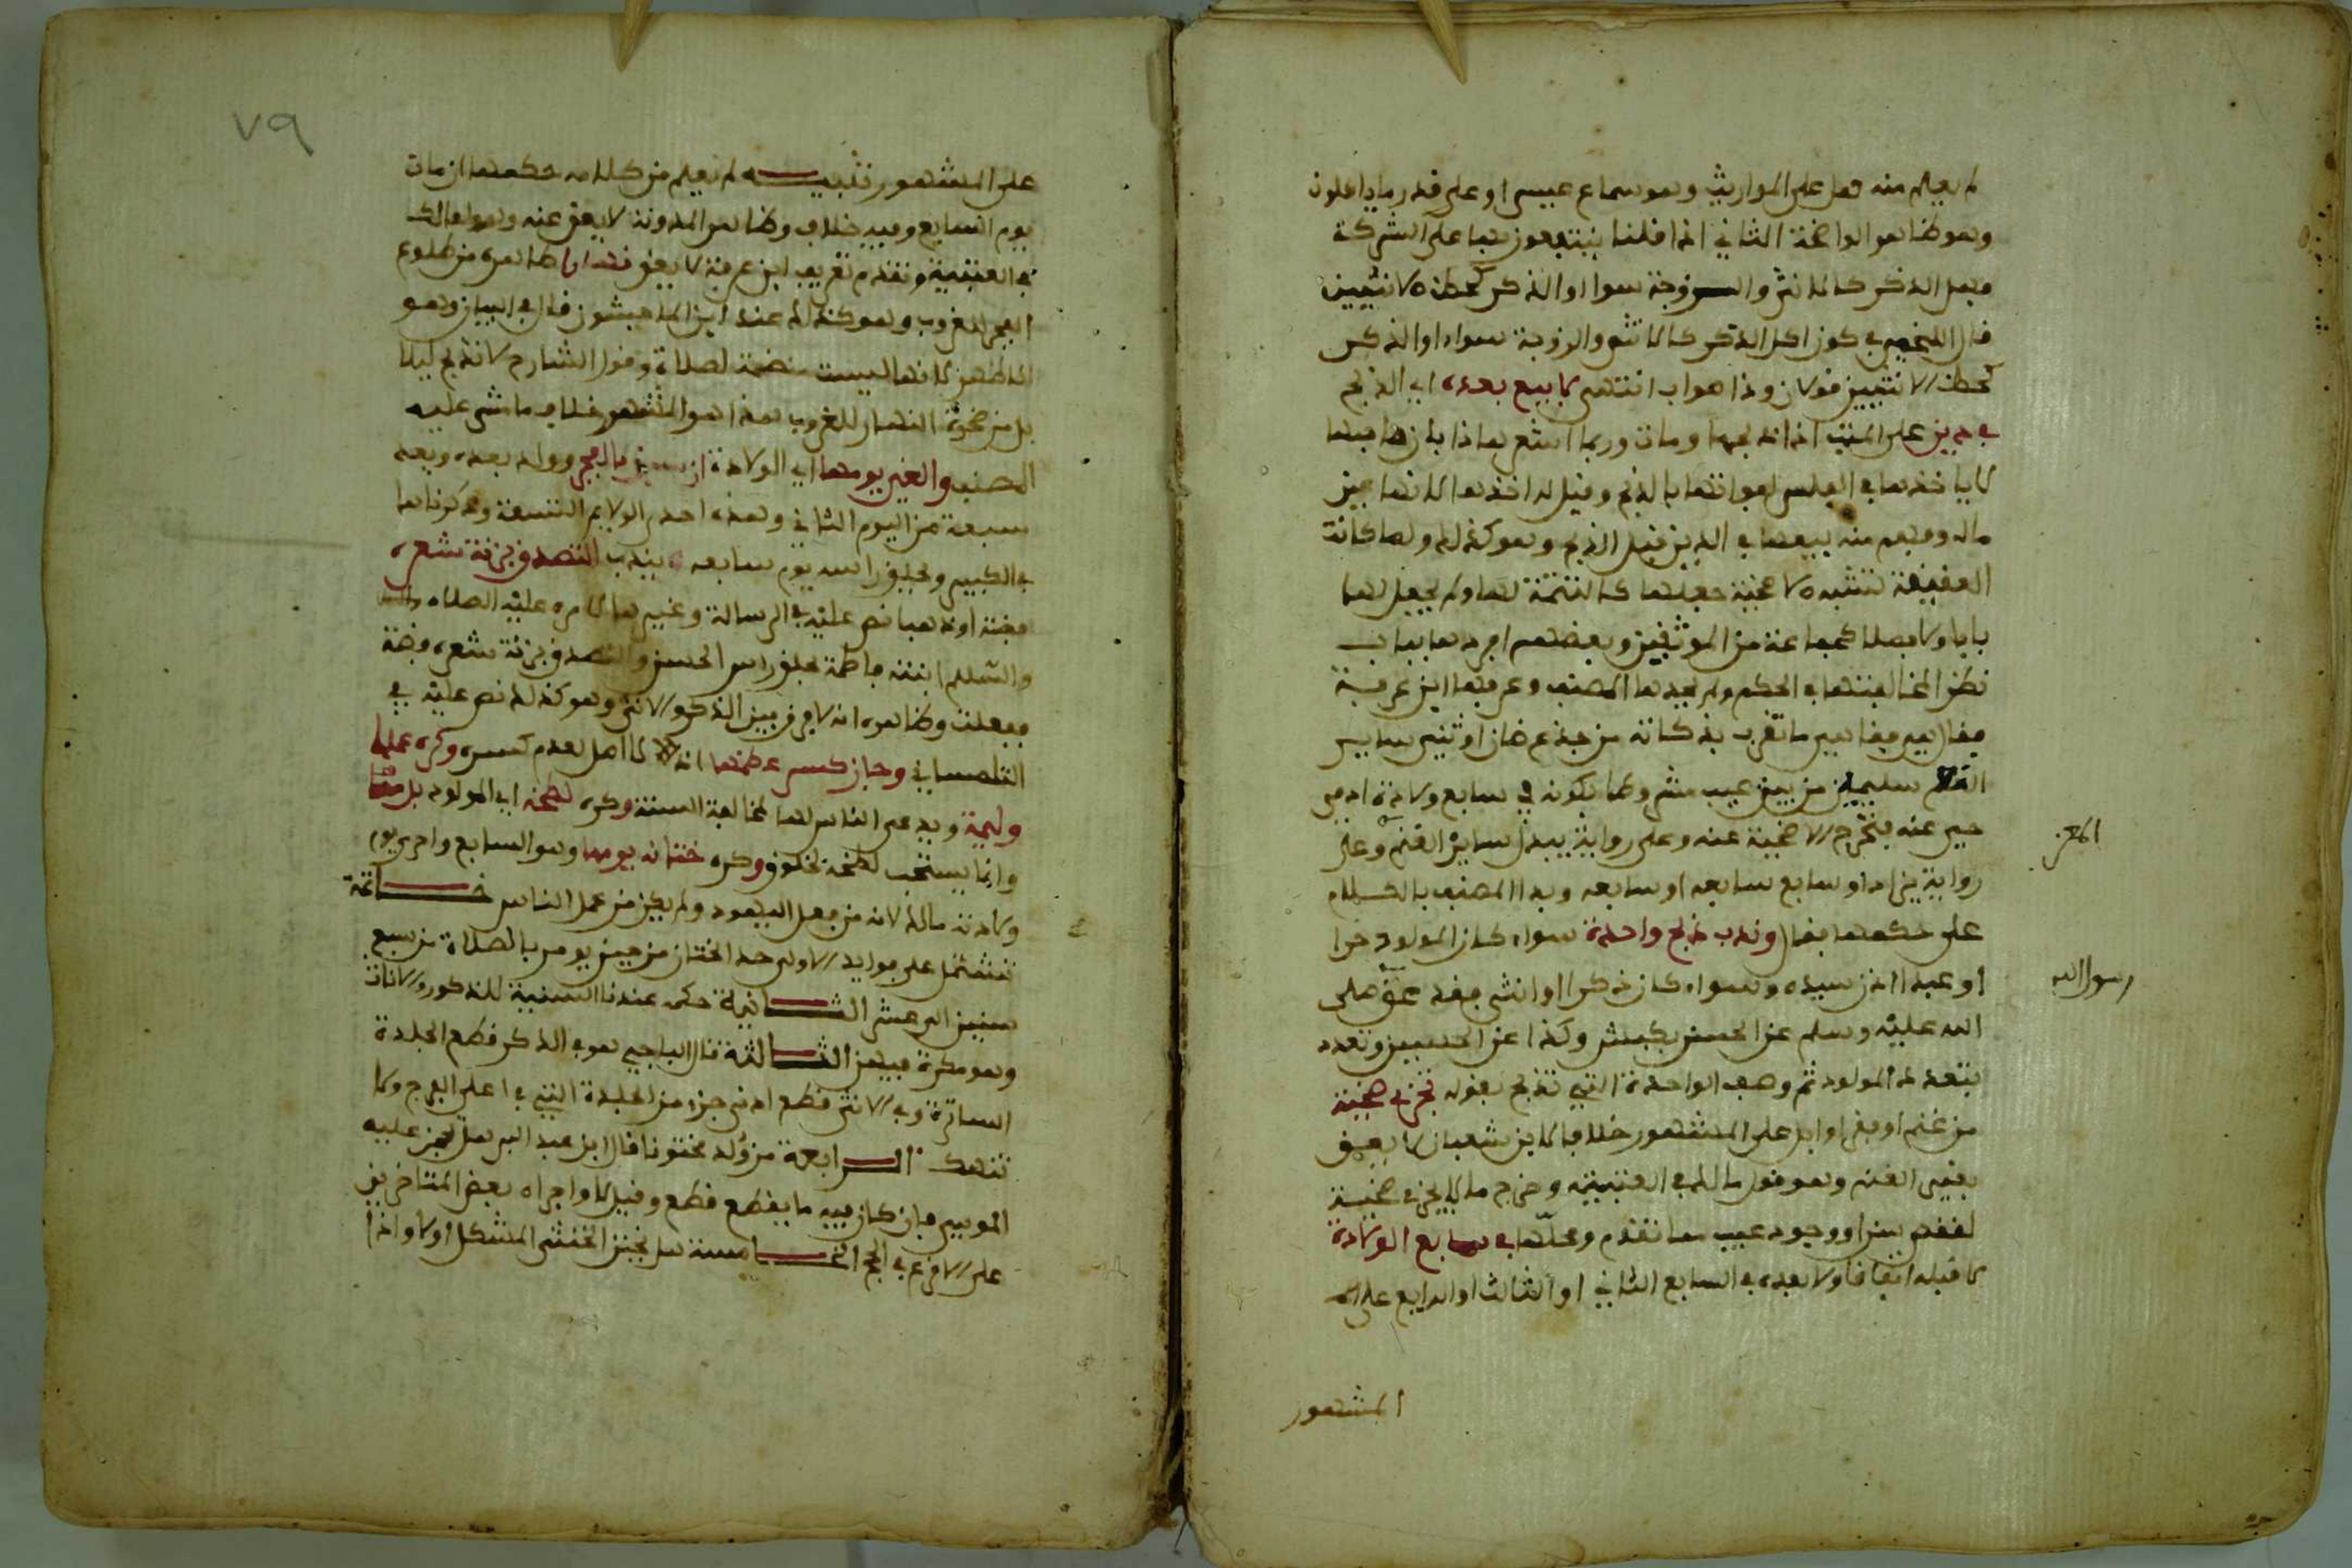 لم يعلم منه فعل على المواريث وهو سماع عيسى او على قدر ما ياكلون
وهو ظاهر الواضحة الثاني اذا قلنا ينتفعون بها على الشركة
فهل الذكر كالانثى والزوجة سواء او الذكر كحظ الانثيين
قال اللخمي في كون اكل الذكر كالانثى والزوجة سواء او الذكر
كحظ الانثيين قولان وذا صواب انتهى لا بيع بعده اي الذبح
في دين على الميت اذا ذبحها ومات وربما اشعر هذا بان
لا ياخذها في الفلس لفواتها بالذبح وقيل له اخذها لانها عين
ماله وفهم منه بيعها في الدين قبل الذبح وهو كذلك ولما كانت
العقيقة تشبه الاضحية جعلها كالتتمة لها ولم يجعل لها
بابا ولا فصلا كجماعة من الموثقين وبعضهم افردها بباب
نظرا لمخالفتها في الحكم ولم يحدها المصنف وعرفها ابن عرفة
فقال هي ما تقرب بذكاته من جذع ضان او ثني ساير
الغنم سليمين من بين عيب مشروطا بكونه في سابع ولادة ادمي
حي عنه فتخرج الاضحية عنه وعلى رواية يبدل ساير الغنم وعلى
رواية يزاد او سابع سابعه او سابعه وبدا المصنف بالكلام
على حكمها فقال وندب ذبح واحدة سواء كان المولود حرا
او عبدا اذن سيده وسواء كان ذكرا او انثى فقد عق صلى
الله عليه وسلم عن الحسن بكبش وكذا عن الحسين وتعدد
بتعدد المولود ثم وصف الواحدة التي تذبح بقوله تجزي ضحية
من غنم او بقر او ابل على المشهور خلافا لابن شعبان لا يعق
بغير الغنم وهو قول مالك في العتبية وخرج ما لا يجزي ضحية
لفقد سن او وجود عيب مما تقدم ومحلها في سابع الولادة
لا قبله اتفاقا ولا بعده في السابع الثاني او الثالث او الرابع على
المعز
رسول الله
المشهور
٧٩
على المشهور تنبيـه لم نعلم من كلامه حكمها ان مات
يوم السابع وفيه خلاف وظاهر المدونة لا يعق عنه وهو لمالك
في العتبية وتقدم تعريف ابن عرفة لا يعق نهارا ظاهره من طلوع
الفجر للغروب وهو كذلك عند ابن الماجشون قال في البيان وهو
الاظهر لانها ليست منضمة لصلاة وقول الشارح لا تذبح ليلا
بل من ضحوة النهار للغروب هذا هو المشهور خلاف ما مشى عليه
المصنف والغي يومها اي الولادة ان سبق بالفجر وولد بعده ويعد
سبعة من اليوم الثاني وهذه احدى الولايم التسعة وذكرناها
في الكبير ويحلق راسه يوم سابعه يندب التصدق بزنة شعره
فضة او ذهبا نص عليه في الرسالة وغيرها لامره عليه الصلاة
والسلام ابنته فاطمة بحلق راس الحسن والتصدق بزنة شعره فضة
ففعلت وظاهره انه لا فرق بين الذكر والانثى وهو كذلك نص عليه في
التلمساني وجاز كسر عظمها اذ لا اصل لعدم كسره وكره عملها
وليمة ويدعى الناس لها لمخالفة السنة وكره لطخه اي المولود بدمها
وانما يستحب لطخه بخلوق وكره ختانه يومها وهو السابع واحرى يوم
ولادته مالك لانه من فعل اليهود ولم يكن من عمل الناس خـاتمة
تشتمل على فوايد الاولى حد الختان من حين يومر بالصلاة من سبع
سنين الى عشر الثـانية حكمه عندنا السنية للذكور والاناث
وهو مكرمة فيهن الثـالثة قال الباجي هو في الذكر قطع الجلدة
الساترة وفي الانثى قطع ادنى جزء من الجلدة التي في اعلى الفرج ولا
تنهك الـرابعة من ولد مختونا قال ابن عبد البر هل يجز عليه
الموسى فان كان فيه ما يقطع قطع وقيل لا واجراه بعض المتاخرين
على الاقرع في الحج الخـامسة هل يختن الخنثى المشكل اولا واذا